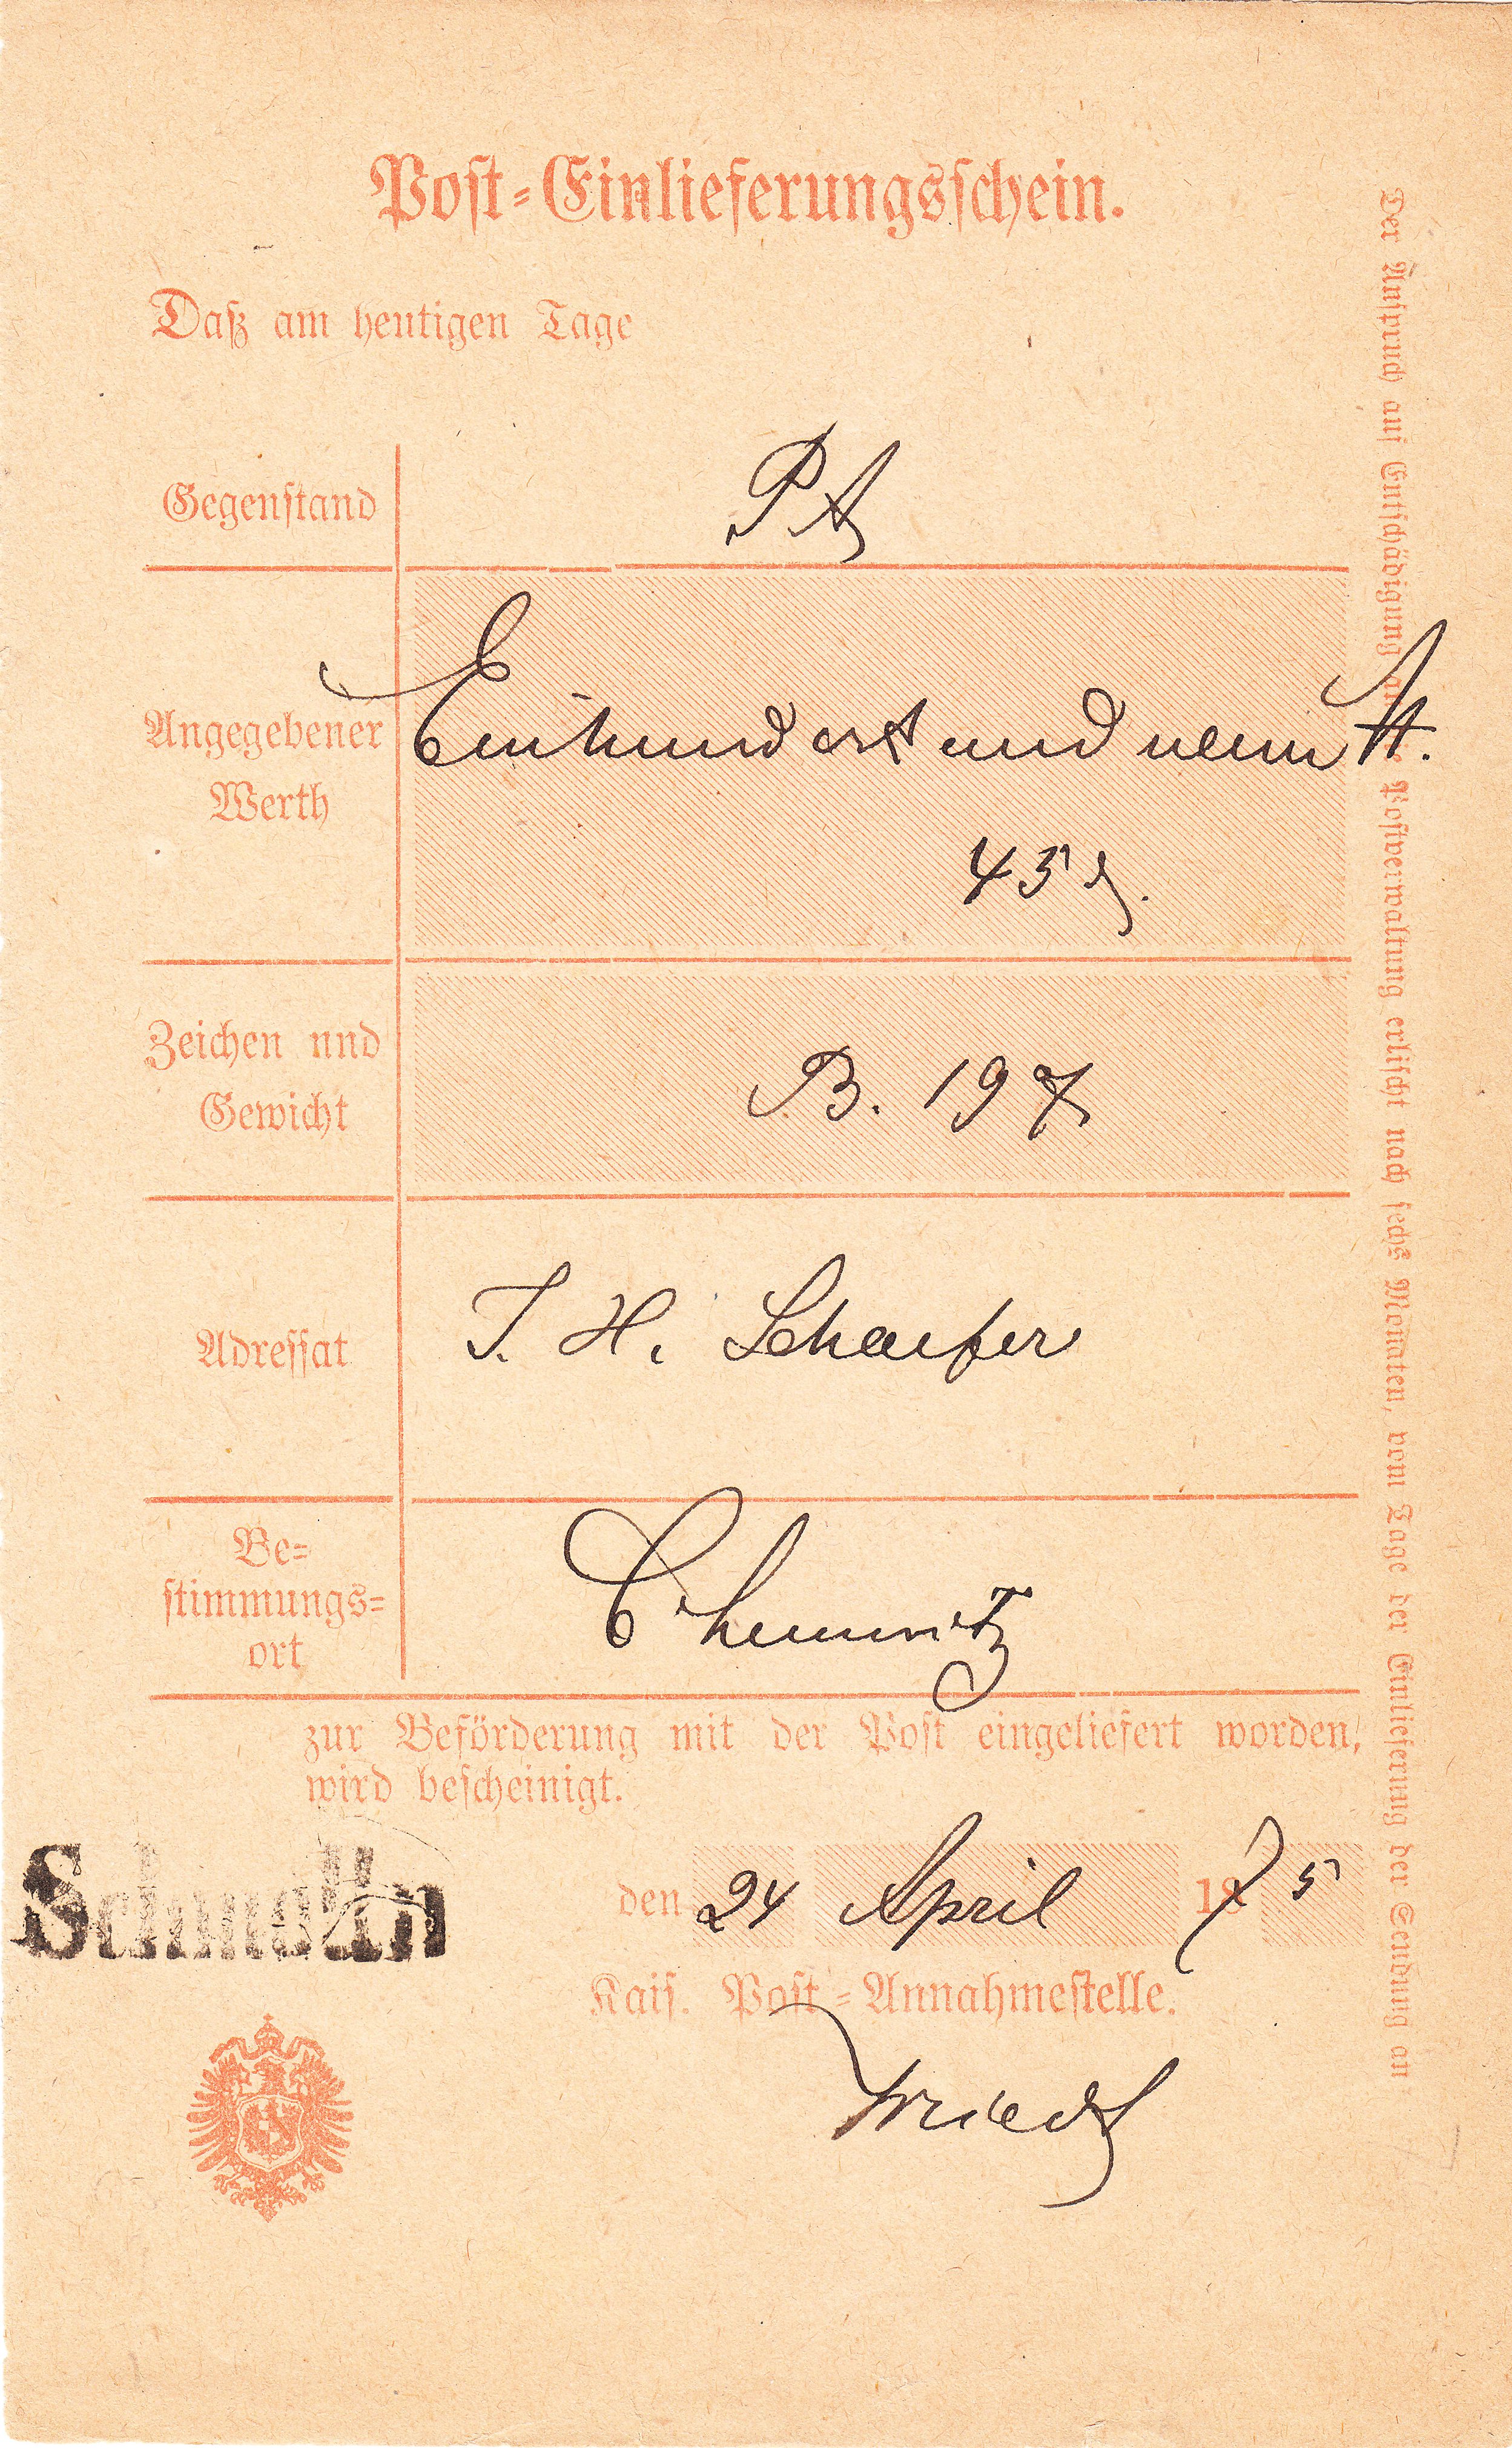 Post-Einlieferungsschein.
Daß am heutigen Tage
Gegenstand PA
Angegebener Werth Einhundert und neun M.
45 ₰.
Zeichen und Gewicht B. 197
Adressat J. H. Schaefer
Be-
stimmungs-
ort Chemnitz
zur Beförderung mit der Post eingeliefert worden,
wird bescheinigt.
Schmölln
den 24 April 1875
Kais. Post-Annahmestelle.
Der Anspruch auf Entschädigung an die Postverwaltung erlischt nach sechs Monaten, vom Tage der Einlieferung der Sendung an